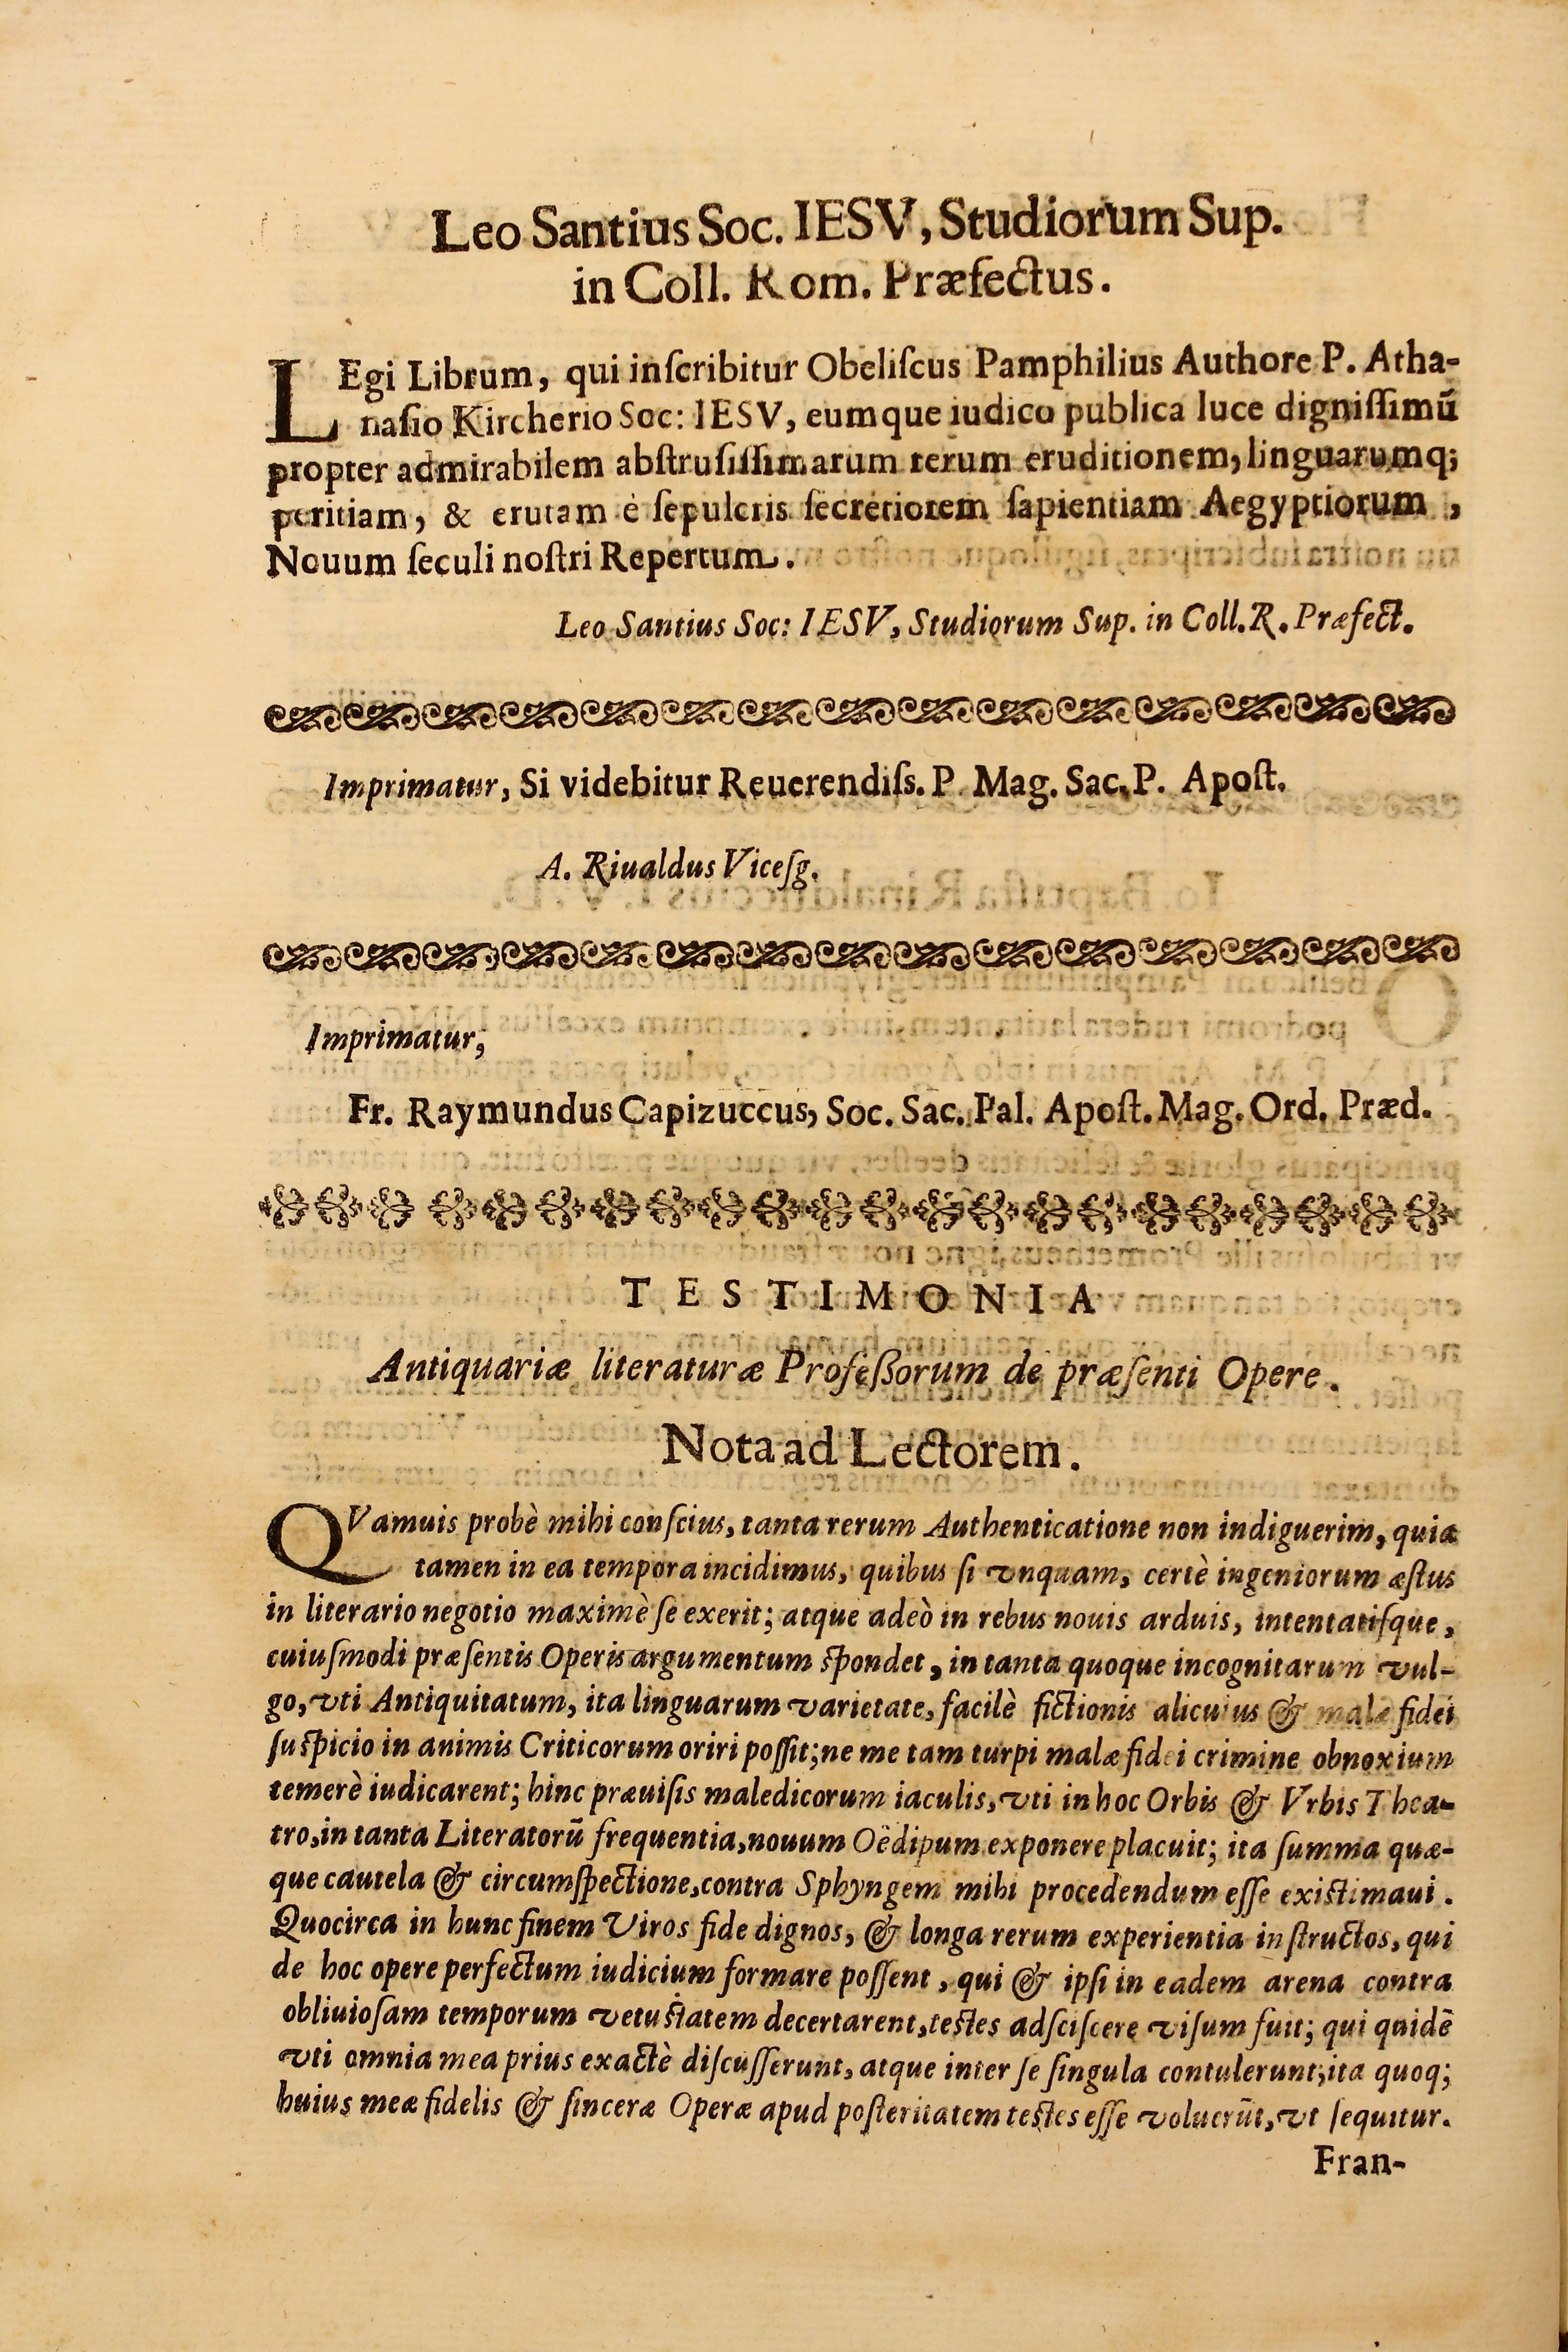 Leo Santius Soc. IESV, Studiorum Sup.
in Coll. Rom. Præfectus.
LEgi Librum, qui inſcribitur Obeliſcus Pamphilius Authore P. Atha-
naſio Kircherio Soc: IESV, eumque iudico publica luce digniſſimū
propter admirabilem abſtruſiſſimarum rerum eruditionem, linguarumq;
peritiam, & erutam è ſepulcris ſecretiorem ſapientiam Aegyptiorum,
Nouum ſeculi noſtri Repertum.
Leo Santius Soc: IESV, Studiorum Sup. in Coll. R. Præfect.
Imprimatur, Si videbitur Reuerendiſs. P. Mag. Sac. P. Apoſt.
A. Riualdus Viceſg.
Imprimatur,
Fr. Raymundus Capizuccus, Soc. Sac. Pal. Apoſt. Mag. Ord. Præd.
TESTIMONIA
Antiquariæ literaturæ Profeßorum de præſenti Opere.
Nota ad Lectorem.
QVamuis probè mihi conſcius, tanta rerum Authenticatione non indiguerim, quia
tamen in ea tempora incidimus, quibus ſi vnquam, certè ingeniorum æſtus
in literario negotio maximè ſe exerit; atque adeò in rebus nouis arduis, intentatiſque,
cuiuſmodi præſentis Operis argumentum ſpondet, in tanta quoque incognitarum vul-
go, vti Antiquitatum, ita linguarum varietate, facilè fictionis alicuius & malæ fidei
ſuſpicio in animis Criticorum oriri poſſit; ne me tam turpi malæ fidei crimine obnoxium
temerè iudicarent; hinc præuiſis maledicorum iaculis, vti in hoc Orbis & Vrbis Thea-
tro, in tanta Literatorū frequentia, nouum Oëdipum exponere placuit; ita ſumma quæ-
que cautela & circumſpectione, contra Sphyngem mihi procedendum eſſe exiſtimaui.
Quocirca in hunc finem Viros fide dignos, & longa rerum experientia inſtructos, qui
de hoc opere perfectum iudicium formare poſſent, qui & ipſi in eadem arena contra
obliuioſam temporum vetuſtatem decertarent, teſtes adſciſcere viſum fuit; qui quidē
vti omnia mea prius exactè diſcuſſerunt, atque inter ſe ſingula contulerunt, ita quoq;
huius meæ fidelis & ſinceræ Operæ apud poſteritatem teſtes eſſe voluerūt, vt ſequitur.
Fran-